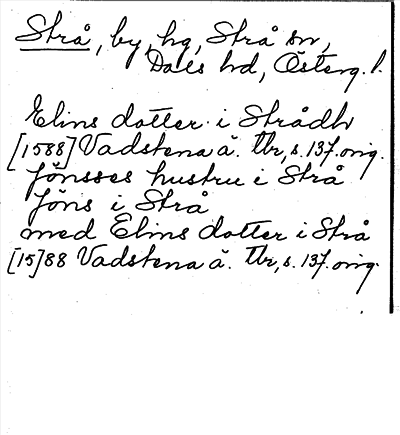 Strå, by, hg, Strå sn,
Dals hd, Österg. l.
Elins dotter i Strådh
[1588] Vadstena ä. Tbr, s. 137. orig.
Jönsses hustru i Strå
Jöns i Strå
med Elins dotter i Strå
[15]88 Vadstena ä. Tbr, s. 137. orig.